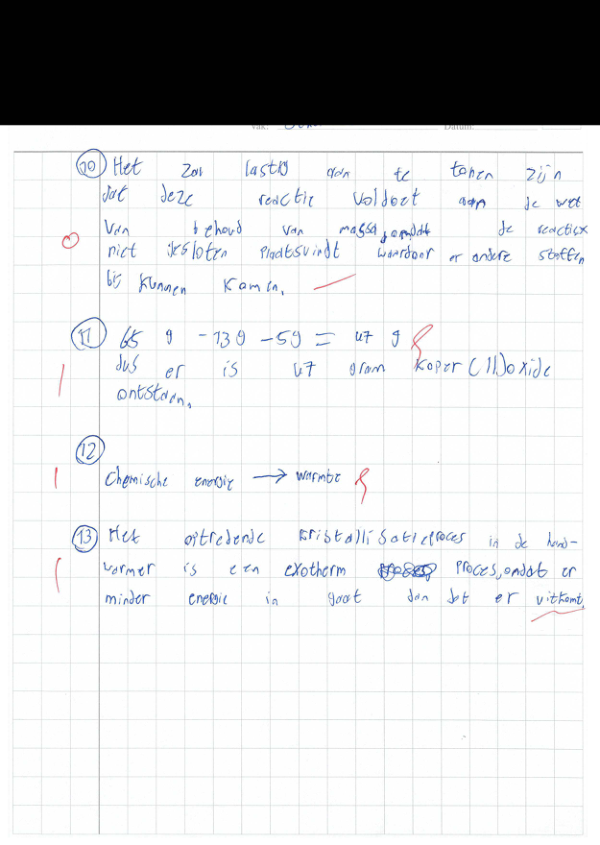 Vak: Datum:
10 Het zou lastig aan te tonen zijn
dat deze reactie voldoet aan de wet
van behoud van massa, omdat de reactie
niet gesloten plaatsvindt waardoor er andere stoffen
bij kunnen komen.
0
11 65 g - 13 g - 5 g = 47 g
dus er is 47 gram koper(II)oxide
ontstaan.
1
12
Chemische energie → warmte
1
13 Het optredende kristallisatieproces in de hand-
warmer is een exotherm proces, omdat er
minder energie in gaat dan dat er uitkomt.
1